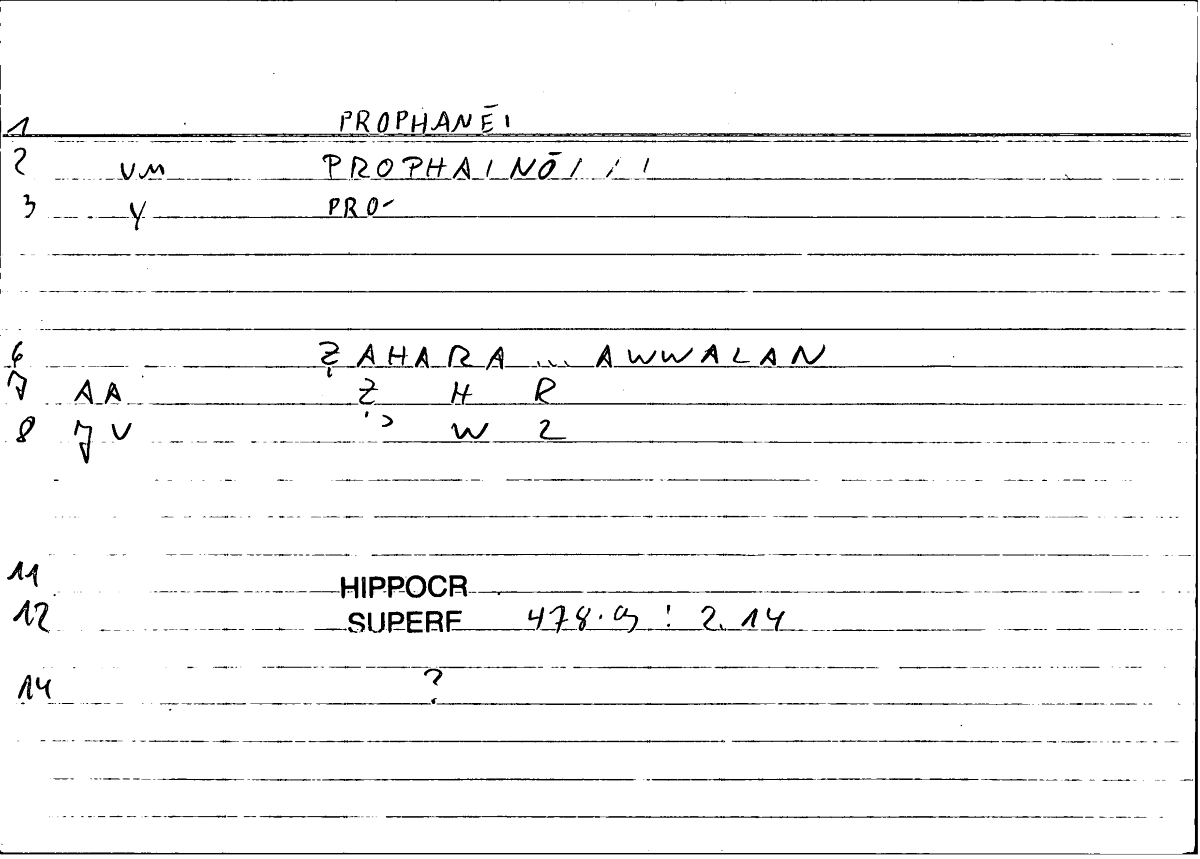 1 PROPHANĒI
2 VM PROPHAINŌ / / /
3 Y PRO-
6 ẒAHARA ... AWWALAN
7 AA Ẓ H R
8 JV ʾ W 2
11 HIPPOCR
12 SUPERF 478.9 : 2.14
14 ?